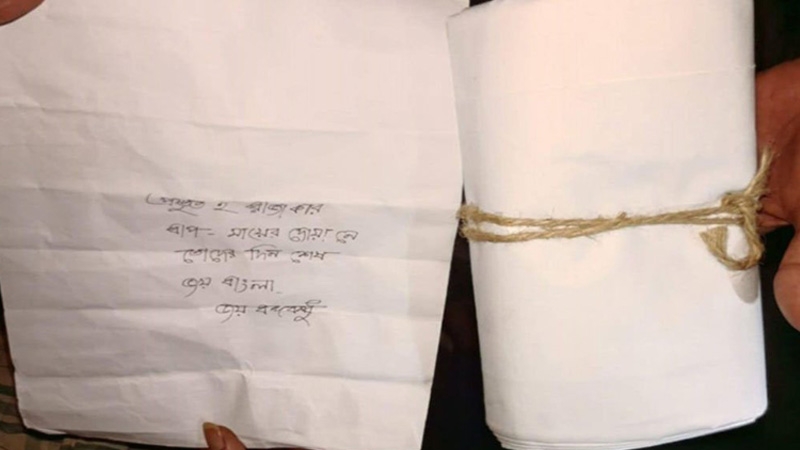 প্রস্তুত হ রাজাকার
বাপ- মায়ের দোয়া নে
তোদের দিন শেষ
জয় বাংলা-
জয় বঙ্গবন্ধু